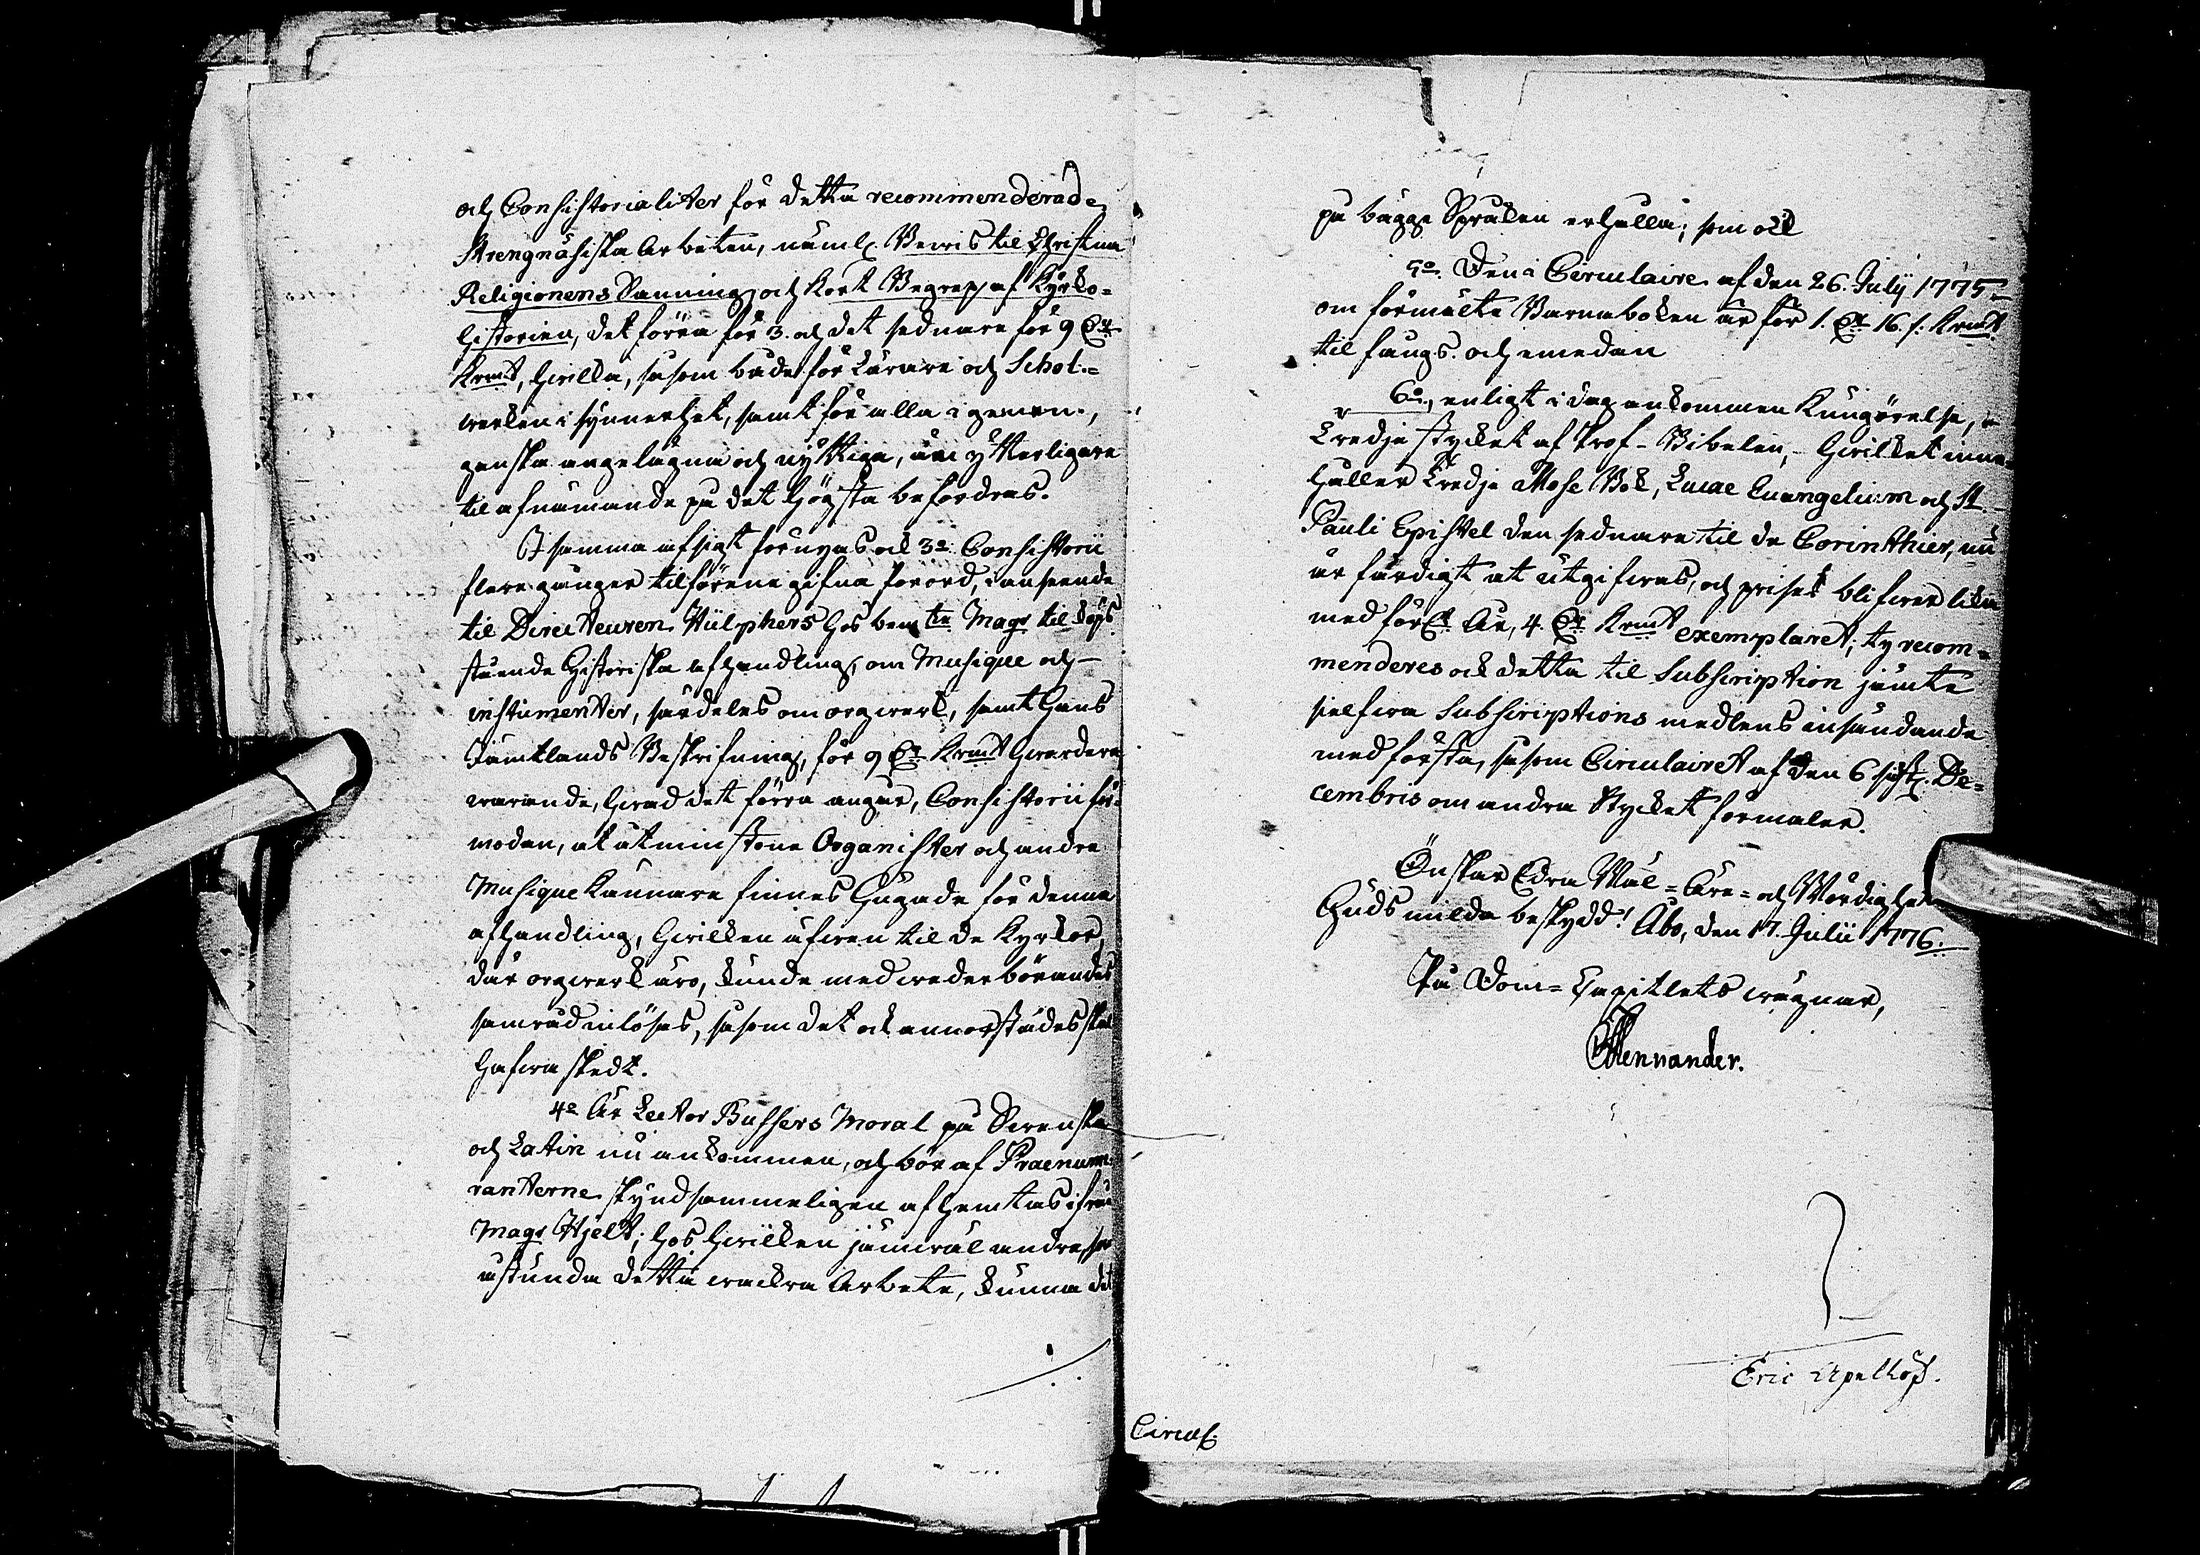 och Consistorialiter för detta recommenderade
Strengnäsiska Arbeten, nämlig. Bewis til Christna
Religionens Sanning, och Kort Begrep af Kyrko-
historien, det förra för 3. och det sednare för 9 Dlr
Krmt, hwilka, såsom både för Lärare och Schol-
werken i synnerhet, samt för alla i gemen,
ganska angelägna och nyttiga, än ytterligare
til afnämande på det högsta befordras.
I samma afsigt förnyas ock 3o Consistorii
flere gånger tilförene gifna förord, i anseende
til Directeuren Hülphers hos bem:te Mag:r til köps
stående Historiska afhandling, om Musique och
instrumenter, särdeles om orgwerk, samt hans
Jämtlands Beskrifning, för 9 Dlr Krmt hwardera
warande, hwad det förra angår, Consistorii för-
modan, at åtminstone Organister och andre
Musique kännare finnes hugade för denna
afhandling, hwilken äfwen til de Kyrkor,
där orgwerk äro, kunde med wederbörandes
samråd inlösas, såsom det ock annorstädes skal
hafwa skedt.
4o Är Lector Bussers Moral på Swenska
och Latin nu ankommen, och bör af Praenume-
ranterne skyndsammeligen afhemtas ifrån
Mag:r Hjelt; hos hwilken jämwäl andre, som
åstunda detta wackra Arbete, kunna det
på bägge Språken erhålla; som ock
5o. Den i Circulaire af den 26. Julij 1775
om förmälte Barnaboken är för 1. Dlr 16. s. Krmt
til fångs. och emedan
6o, enligt i dag ankommen Kungörelse,
tredje stycket af Prof-Bibelen, hwilket inne-
håller tredje Mose Bok, Lucae Euangelium och St.
Pauli Epistel den sednare til de Corinthier, nu
är färdigt at utgifwas, och priset blifwer lika
med förra År, 4. Dlr Krmt exemplaret; ty recom-
menderes ock detta til Subscription jämte
sielfwa Subscriptions medlens insändande
med första, såsom Circulairet af den 6 sistl. De-
cembris om andra Stycket förmäler.
Önskar Edra Wäl- Äre- och Wördigheter
Guds milda beskydd! Åbo, den 17. Julii 1776.
På Dom-Capitlets wägnar,
CF Mennander.
Eric Apelhof.
Circul.